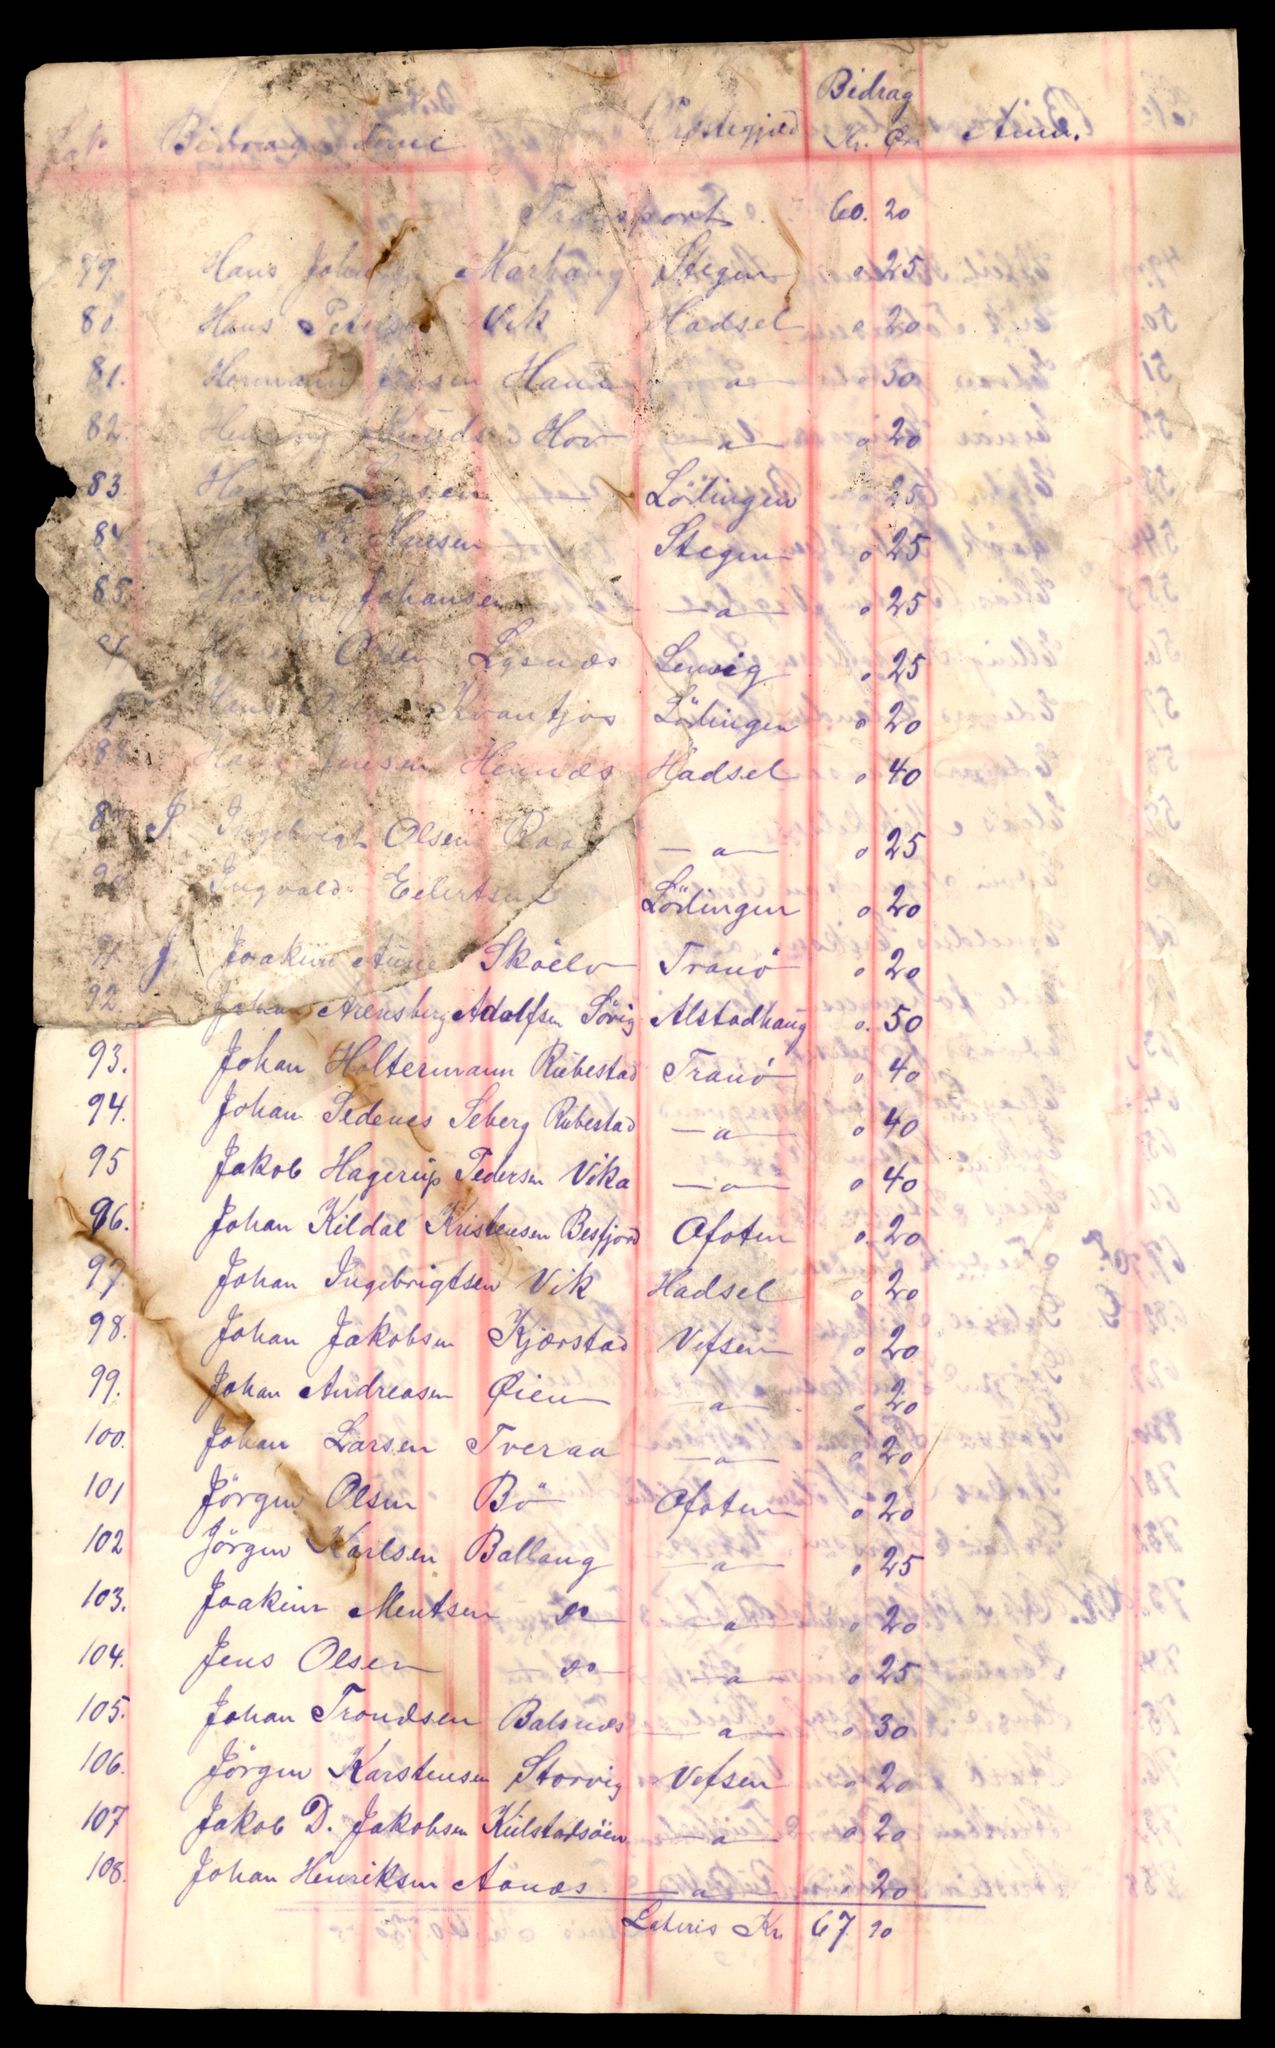 Bidrag
Præstegjeld Kr. Øre Anm.
Transport 60. 20
79. Hans Marhaug Stegen " 25
80. Hans Vik Hadsel " 20
81. Hermann Jensen — a — 30
82. Hov — a — " 20
83 Lödingen " 25
84 Stegen " 25
85 Johansen — a — " 25
Lysnæs Lenvig " 25
Hans Kvantfjos Lödingen " 20
88 Jensen Hennæs Hadsel " 40
J. Ingebrigt Olsen — a — " 25
Ingvald Eilertsen Lödingen " 20
J. Joakim Skoelv Tranö " 20
92. Johan Arensberg Adolfsen Sövig Alstadhaug " 50
93. Johan Holtermann Rubestad Tranö " 40
94. Johan Seberg Rubestad — a — " 40
95 Jakob Hagerup Pedersen Vika — a — " 40
96. Johan Kildal Kristensen Besfjord Ofoten " 20
97. Johan Ingebrigtsen Vik Hadsel " 20
98. Johan Jakobsen Kjærstad Vefsen " 20
99. Johan Andreasen Øien — a — " 20
100. Johan Larsen Tveraa — a — " 20
101 Jörgen Olsen Bö Ofoten " 20
102 Jörgen Karlsen Ballang — a — " 25
103. Joakim Mentsen do — a — " 20
104. Jens Olsen do — a — " 25
105. Johan Trondsen Balsnes — a — " 30
106. Jörgen Karstensen Storvig Vefsen " 20
107 Jakob D. Jakobsen Kulstadsöien — a — " 20
108. Johan Henriksen Aanæs — a — " 20
Lateris Kr. 67. 90